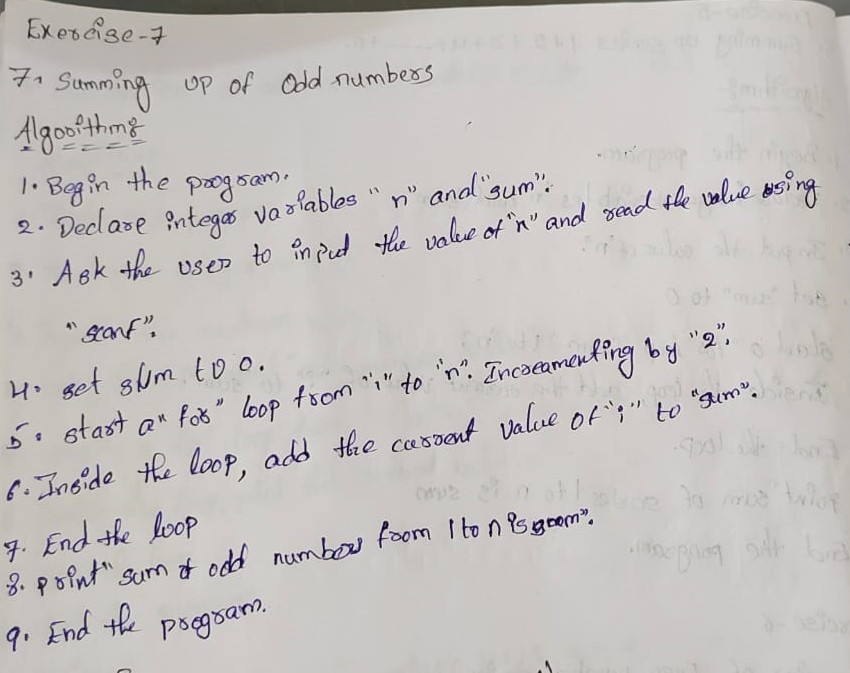 Exercise-7
7. Summing up of Odd numbers
Algorithm:
1. Begin the program.
2. Declare integer variables "n" and "sum".
3. Ask the user to input the value of "n" and read the value using
"scanf".
4. set sum to 0.
5. start a "for" loop from "i" to "n". Increamenting by "2".
6. Inside the loop, add the current value of "i" to "sum".
7. End the loop
8. print "sum of odd numbers from 1 to n is
9. End the program.